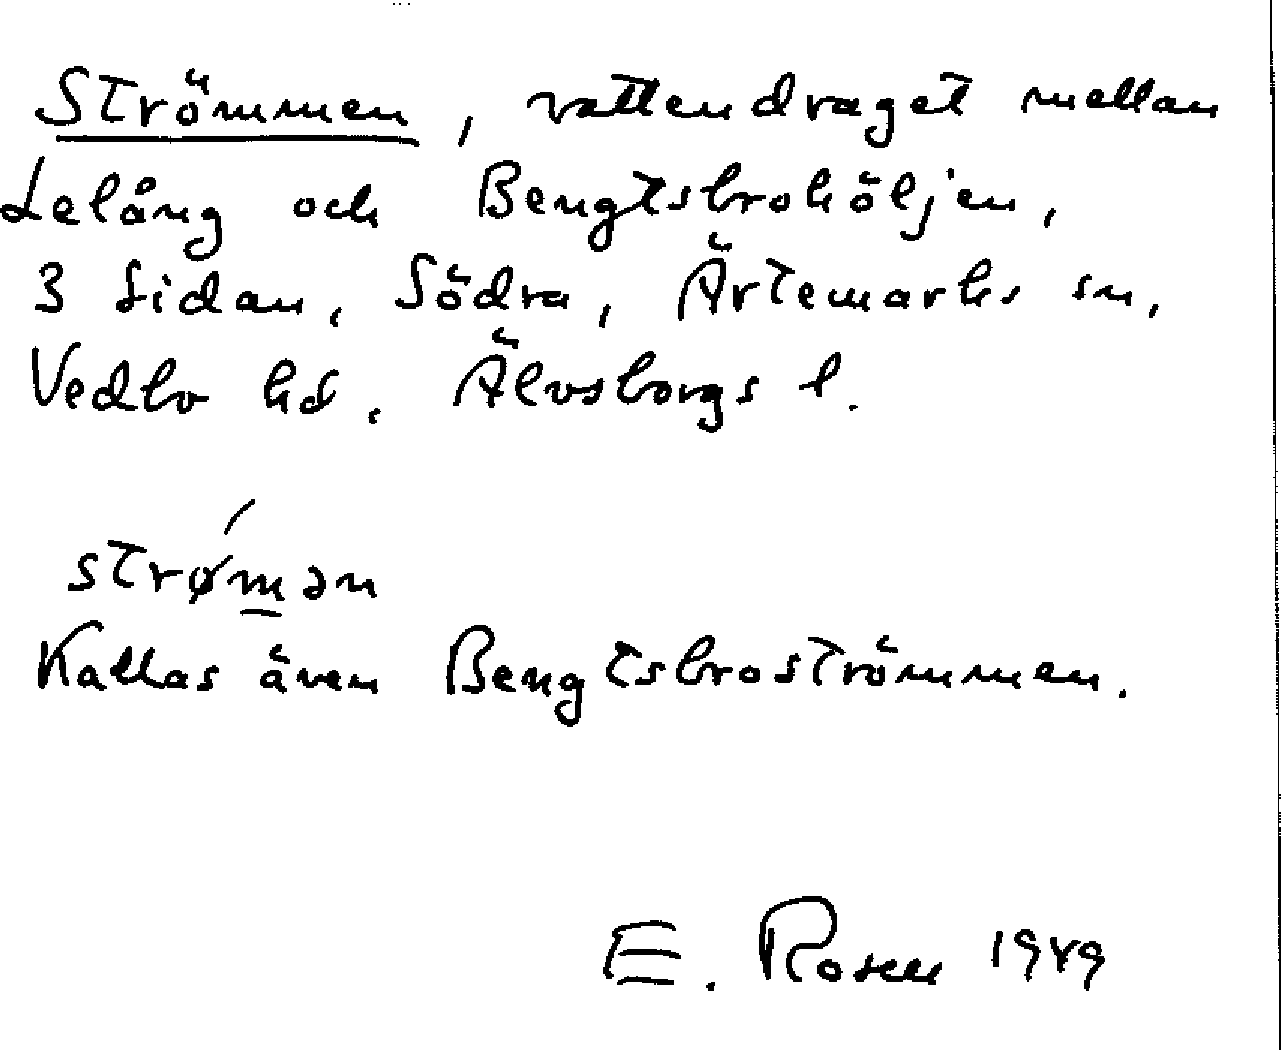 Strömmen, vattendraget mellan
Lelång och Bengtsbrohöljen,
3 Sidan, Södra, Ärtemarks sn,
Vedbo hd, Älvsborgs l.
strø´m̲ən
Kallas även Bengtsbroströmmen.
E. Rosen 1949